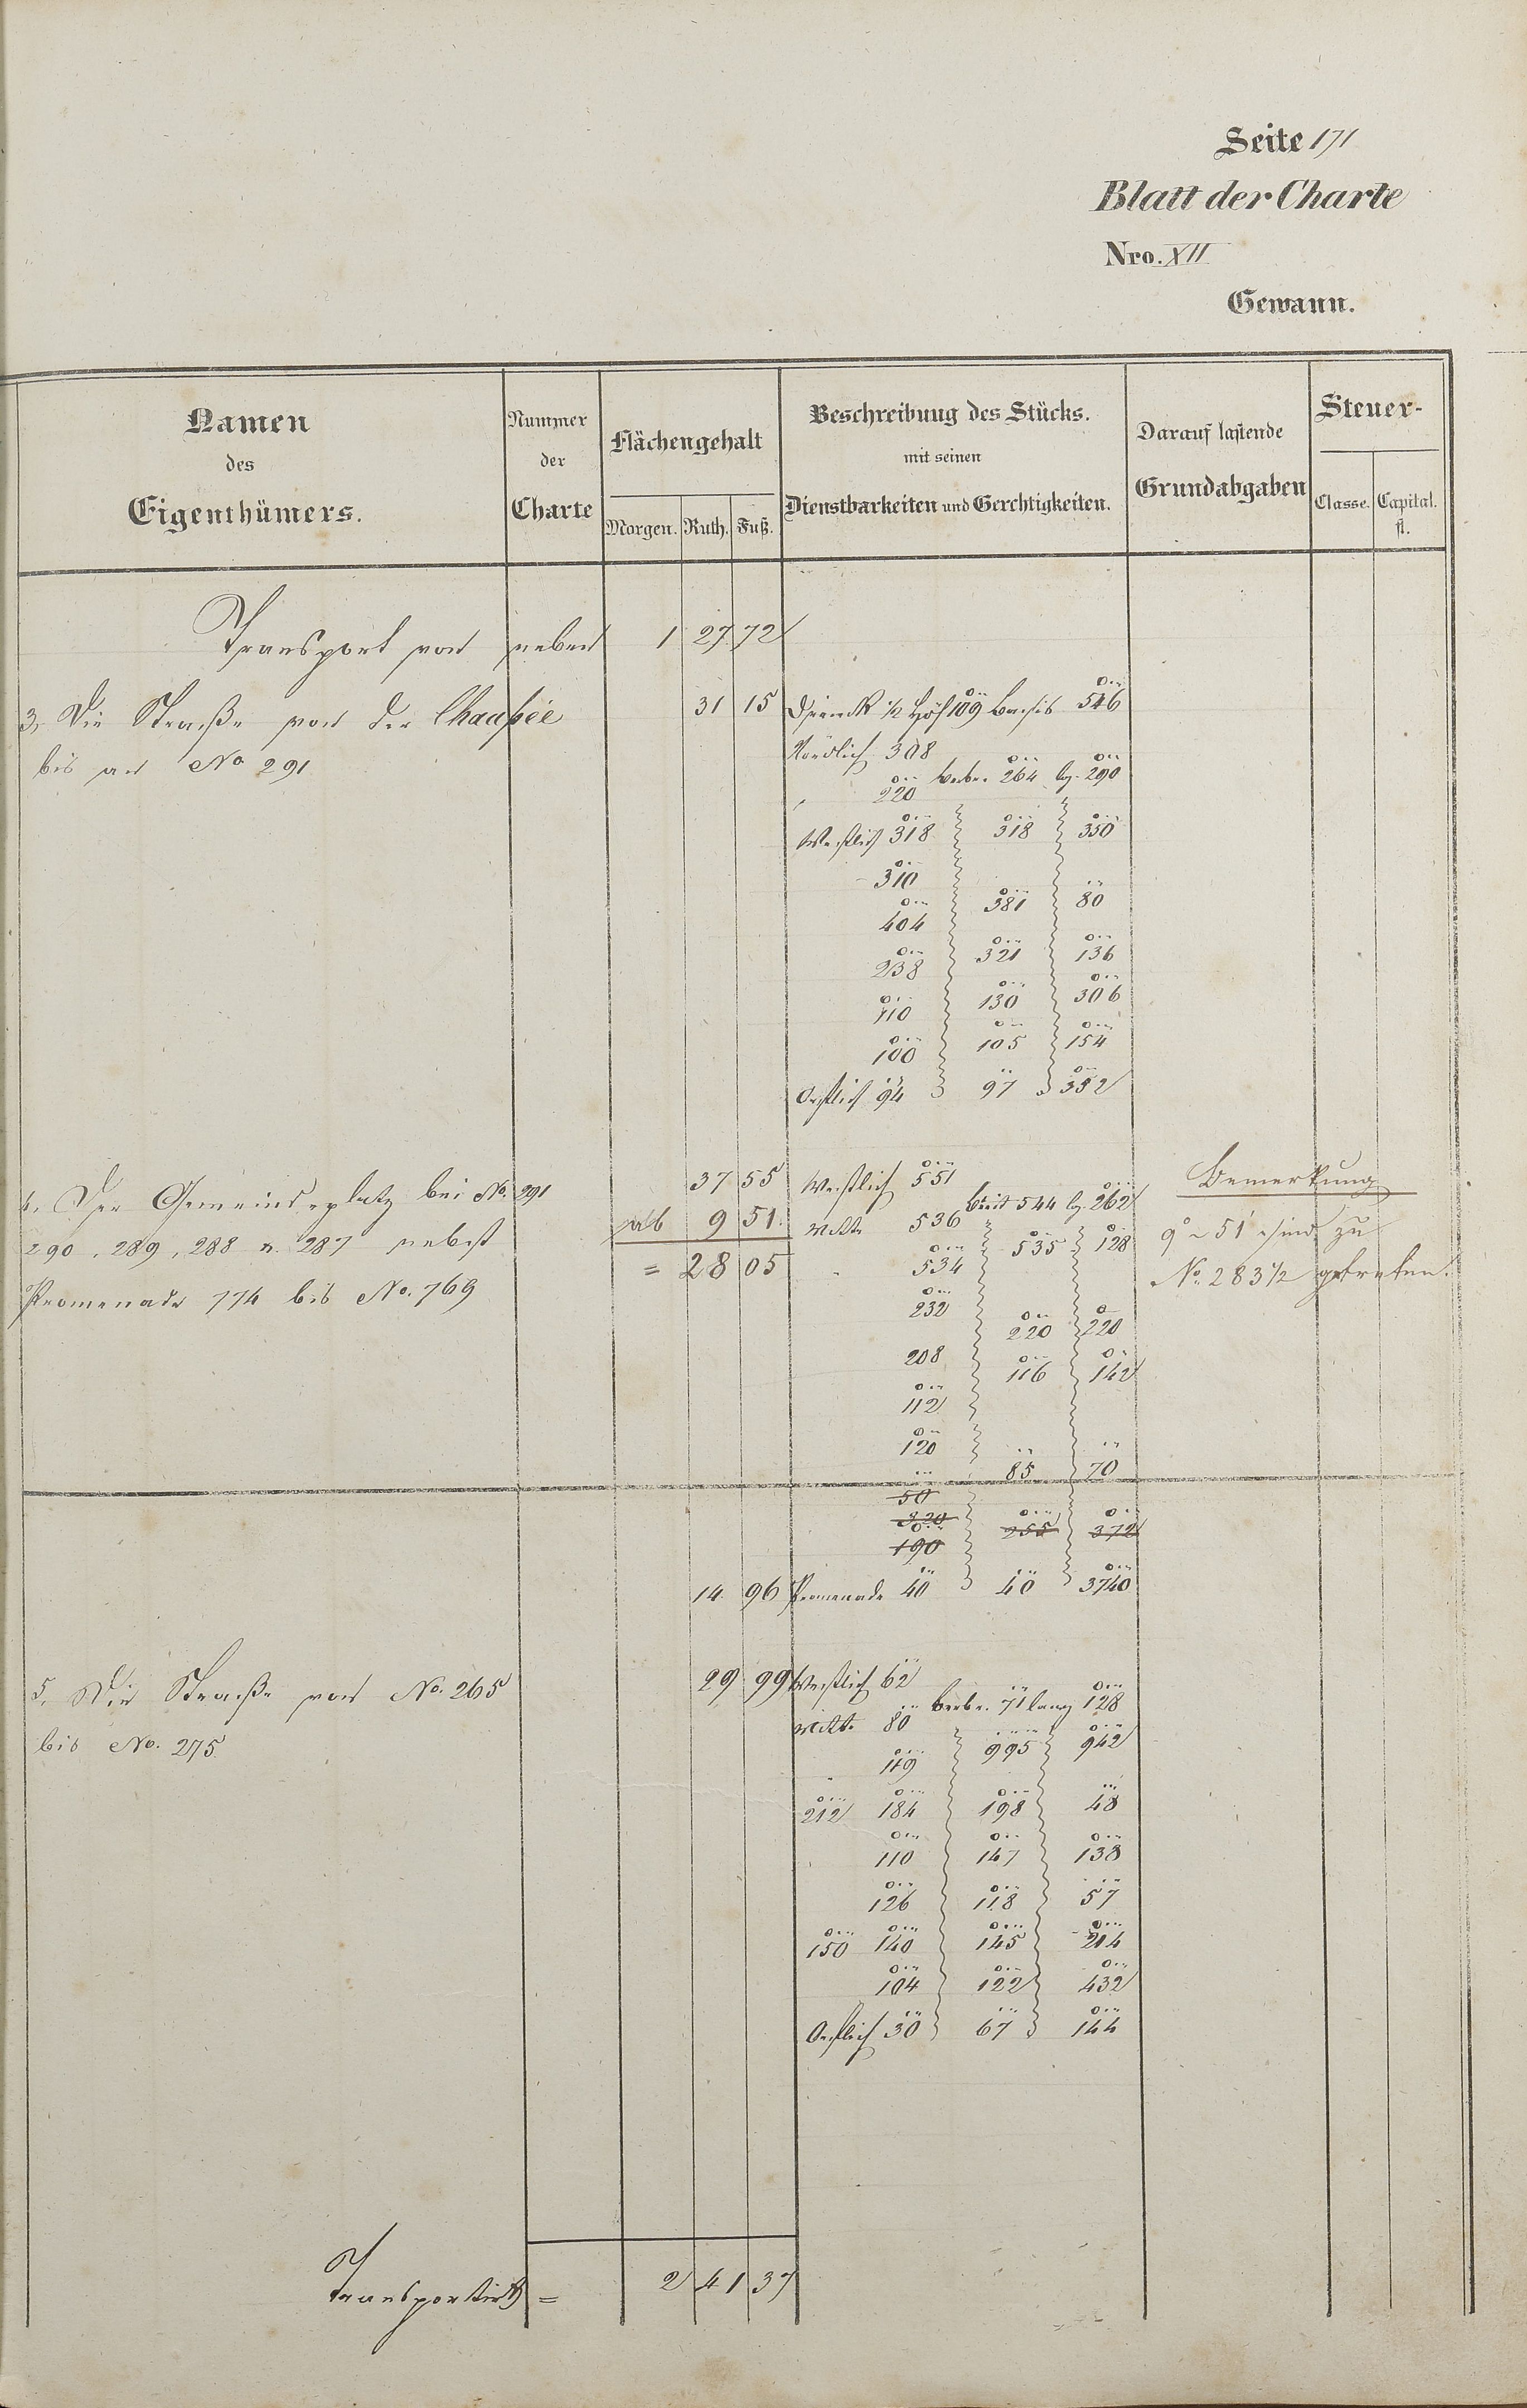 Seite 171
Blatt der Charte
Nro. XII
Gewann.
Namen des Eigenthümers.
Nummer der Charte
Flächengehalt
Morgen. Ruth. Fuß.
Beschreibung des Stücks. mit seinen Dienstbarkeiten und Gerechtigkeiten.
Darauf lastende Grundabgaben
Steuer-
Classe. Capital. fl.
Transport von neben 1 27 72
3, Die Straße von der Chaußée 31 15 Dreieck ½ Höh 109 Basis 546
bis an No 291 Nördlich 308
220 verbr. 264 lg. 290
Westlich 318 318 350
310
404 381 80
238 321 136
110 130 306
100 105 154
Oestlich 94 97 352
4. Der Gemeindsplatz bei No. 291 37 55 Westlich 551 Bemerkung
290, 289, 288 u. 287 nebst ab 9 51 Mitte 536 breit 544 lg. 262 9° 51' sind zu
= 28 05 534 535 128 No. 283½ getreten.
Promenade 774 bis No. 769
232
208 220 220
112 116 142
120
50 85 70
320
190 255 372
14 96 Promenade 40 40 3740
5. Die Straße von No. 265 29 99 Westlich 62
bis No. 275 Mitte 80 verbr. 71 lang 128
119 995 942
212 184 198 48
110 147 138
126 118 57
150 140 145 214
104 122 432
Oestlich 30 67 144
Transportirt = 2 41 37